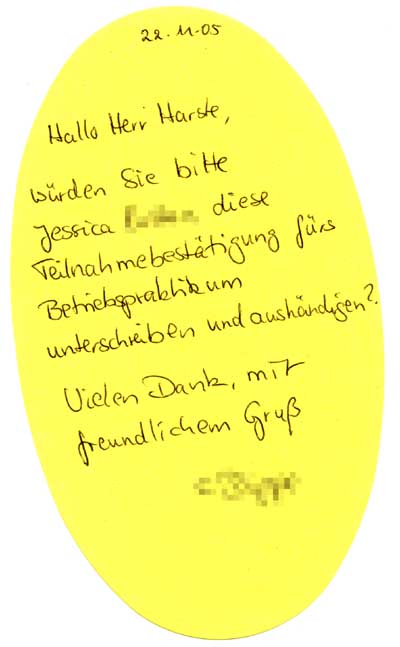 22.11.05
Hallo Herr Harste,
würden Sie bitte
Jessica diese
Teilnahmebestätigung fürs
Betriebspraktikum
unterschreiben und aushändigen?
Vielen Dank, mit
freundlichem Gruß